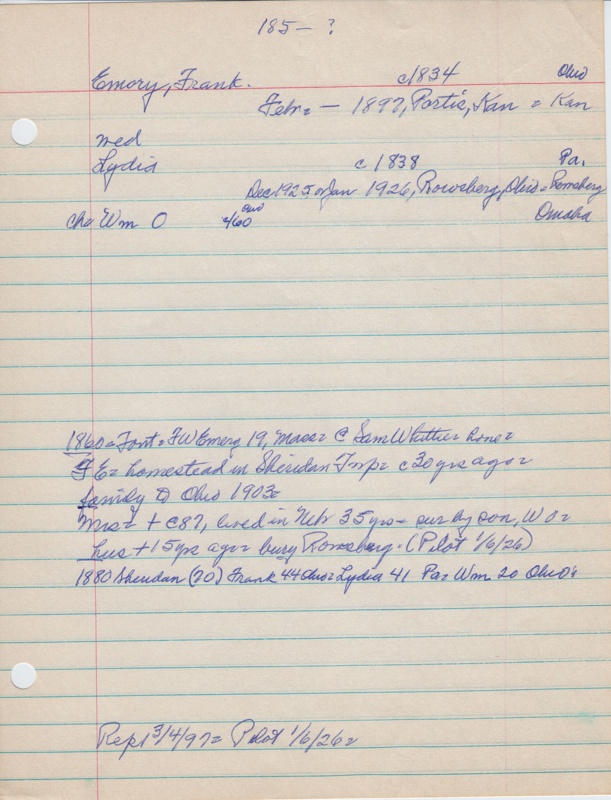 185- ?
Emory, Frank. c1834 Ohio
Febr= - 1897, Portis, Kan = Kan
med
Lydia c 1838 Pa.
Dec 1925 or Jan 1926, Rowsberg, Ohio = Romsberg
Ohio Omaha
cho Wm O c/60
1860= Font= FW Emery 19, Mass= C Sam Whittier home=
F E= homestead in Sheridan Twp= c30 yrs ago=
family to Ohio 1903=
Mrs= + c87, lived in Neb 35 yrs= sur by son, W O=
hus + 15 yrs ago= bury Romsberg. (Pilot 1/6/26)
1880 Sheridan (20) Frank 44 Ohio= Lydia 41 Pa= Wm 20 Ohio=
Rept 3/4/97= Pilot 1/6/26=